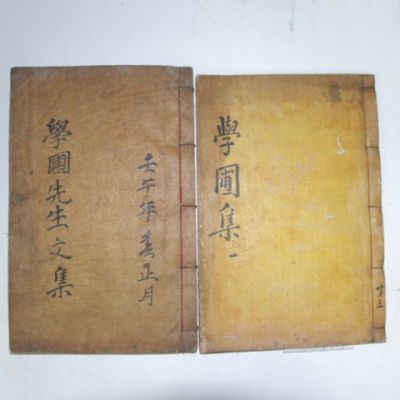 學圃先生文集
壬午年春正月
學圃集 一
共三